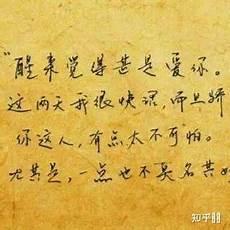 "醒来覺得甚是爱你。
这两天我很快活,而且骄
你这人,有点太不可怕。
尤其是,一点也不莫名其
知乎